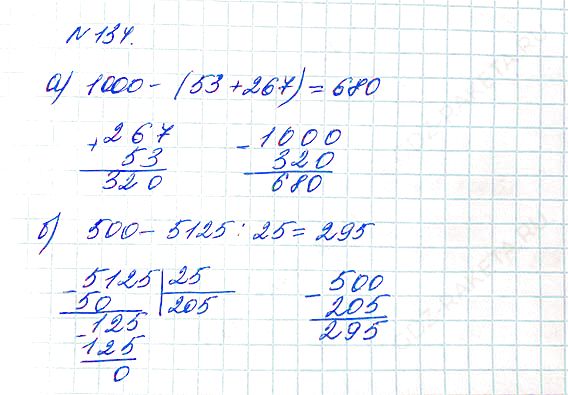 № 134.
а) 1000 - (53 + 267) = 680
+ 267
53
320
- 1000
320
680
б) 500 - 5125 : 25 = 295
- 5125 | 25
50 | 205
- 125
125
0
- 500
205
295